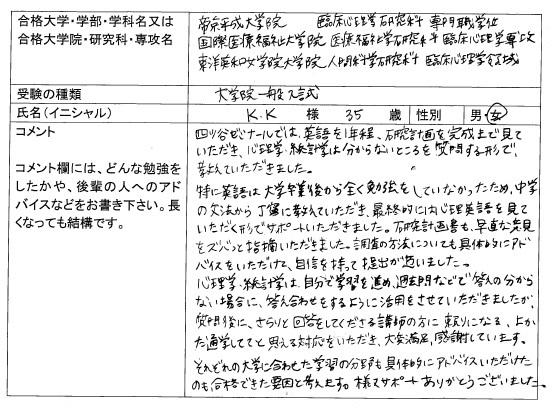 合格大学・学部・学科名又は
合格大学院・研究科・専攻名
帝京平成大学院 臨床心理学研究科 専門職学位
国際医療福祉大学院 医療福祉学研究科 臨床心理学専攻
東洋英和女学院大学院 人間科学研究科 臨床心理学領域
受験の種類
大学院一般入試
氏名(イニシャル)
K.K 様 35 歳 性別 男・女
コメント
コメント欄には、どんな勉強を
したかや、後輩の人へのアド
バイスなどをお書き下さい。長
くなっても結構です。
四ツ谷ゼミナールでは、英語を1年程、研究計画を完成まで見て
いただき、心理学・統計学は分からないところを質問する形で、
教えていただきました。
特に英語は大学卒業後から全く勉強をしていなかったため、中学
の文法から丁寧に教えていただき、最終的に心理英語を見て
いただく形でサポートいただきました。研究計画書も、率直な意見
をズバッと指摘いただきました。調査の方法についても具体的にアド
バイスをいただけて、自信を持って提出が適いました。
心理学・統計学は、自分で学習を進め、過去問などで答えの分から
ない場合に、答え合わせをするように活用をさせていただきましたが、
質問後に、さらりと回答をしてくださる講師の方に頼りになる、よか
た通学してと思える対応をいただき、大変満足、感謝しています。
それぞれの大学に合わせた学習の分野も具体的にアドバイスいただけた
のも合格できた要因と考えます。様々サポートありがとうございました。